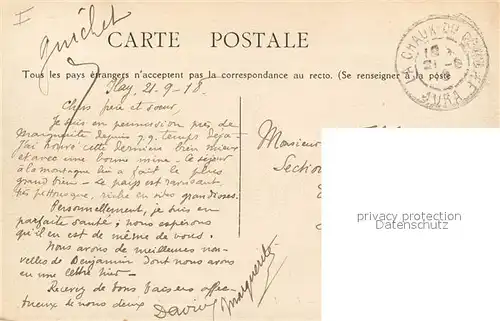 I
guichet
CARTE POSTALE
Tous les pays étrangers n'acceptent pas la correspondance au recto. (Se renseigner à la poste
LA CHAUX DU
JURA
21.9.18.
Chers frère et sœur,
Je suis en permission près de
Marguerite depuis qq. temps déjà
J'ai trouvé cette dernière bien mieux
et avec une bonne mine. Ce séjour
à la montagne lui a fait le plus
grand bien. Le pays est ravissant
très pittoresque, riche en sites grandioses.
Personnellement, je suis en
parfaite santé ; nous espérons
qu'il en est de même de vous.
Nous avons de meilleures nou-
velles de Benjamin dont nous avons
eu une lettre hier.
Recevez de bons baisers affec-
tueux de nous deux
Marguerite
Monsieur
Section
privacy protection
watermark